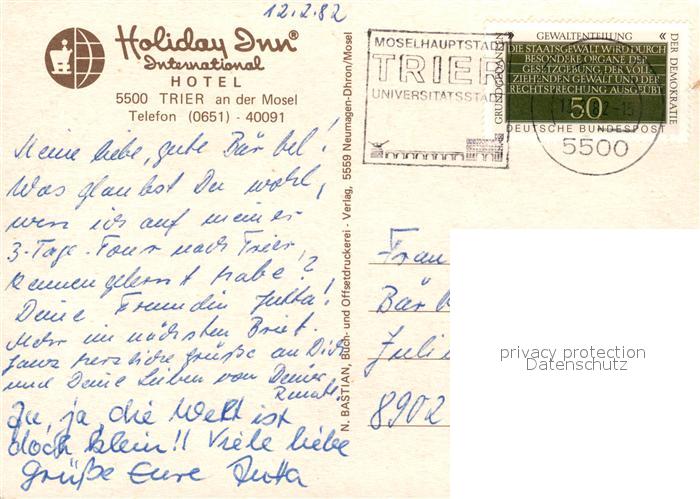 12.2.82
Holiday Inn®
International
HOTEL
5500 TRIER an der Mosel
Telefon (0651) - 40091
MOSELHAUPTSTADT
TRIER
UNIVERSITÄTSSTADT
GEWALTENTEILUNG
DIE STAATSGEWALT WIRD DURCH
BESONDERE ORGANE DER
GESETZGEBUNG, DER VOLL
ZIEHENDEN GEWALT UND DER
RECHTSPRECHUNG AUSGEÜBT
50
DEUTSCHE BUNDESPOST
GRUNDGEDANKEN
DER DEMOKRATIE
5500
Meine liebe, gute Bärbel!
Was glaubst Du wohl,
wen ich auf meiner
3-Tage-Tour nach Trier,
kennengelernt habe?
Deine Freundin Jutta!
Mehr im nächsten Brief.
Ganz herzliche Grüße an Dich
und Deine Lieben von Deiner
Renate
Ja, ja, die Welt ist
doch klein!! Viele liebe
Grüße Eure Jutta
N. BASTIAN, Buch- und Offsetdruckerei - Verlag, 5559 Neumagen-Dhron/Mosel
Frau
Bär
Juli
8902
privacy protection
Datenschutz